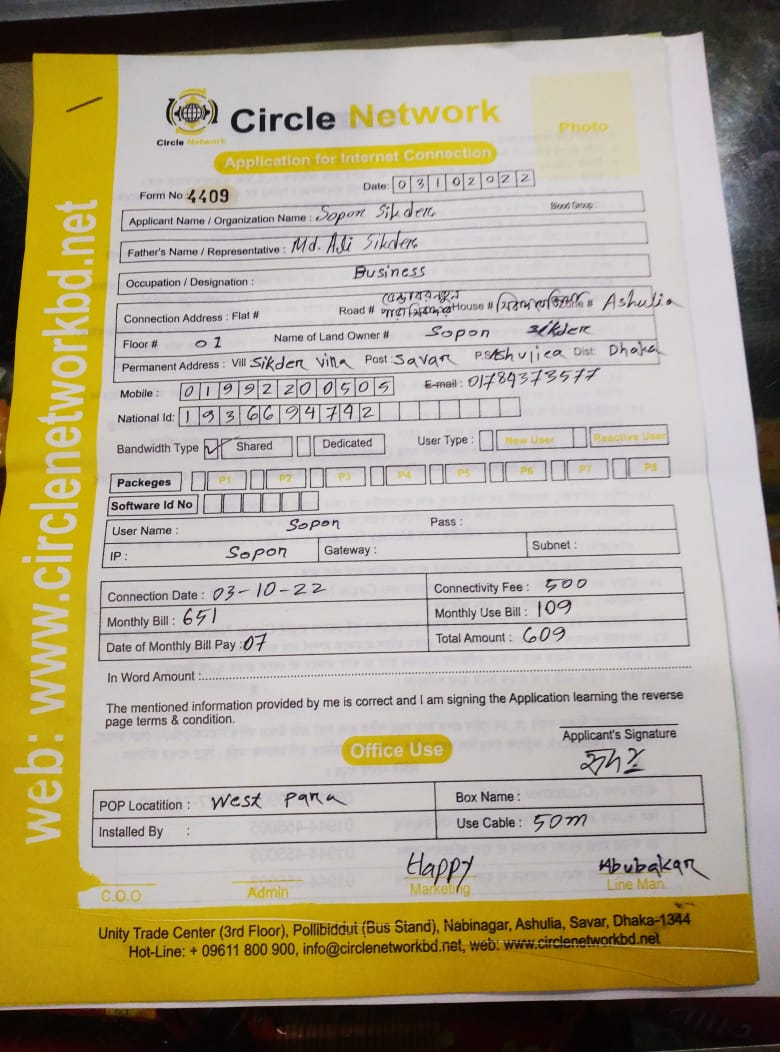 web: www.circlenetworkbd.net
Circle Network
Circle Network
Photo
Application for Internet Connection
Form No : 4409
Date: 03102022
Applicant Name / Organization Name : Sopon Sikder
Blood Group :
Father's Name / Representative : Md. Ali Sikder
Occupation / Designation : Business
Connection Address : Flat # Road # House # Zone # Ashulia
Floor # 01 Name of Land Owner # Sopon Sikder
Permanent Address : Vill Sikder Villa Post : Savar P.S Ashuliea Dist: Dhaka
Mobile : 01992200505 E-mail : 01784373577
National Id: 1936694742
Bandwidth Type Shared Dedicated User Type : New User Reactive User
Packeges P1 P2 P3 P4 P5 P6 P7 P8
Software Id No
User Name : Sopon Pass :
IP : Sopon Gateway : Subnet :
Connection Date : 03-10-22 Connectivity Fee : 500
Monthly Bill : 651 Monthly Use Bill : 109
Date of Monthly Bill Pay : 07 Total Amount : 609
In Word Amount :
The mentioned information provided by me is correct and I am signing the Application learning the reverse
page terms & condition.
Applicant's Signature
Office Use
POP Locatition : West para Box Name :
Installed By : Use Cable : 50m
Happy Abubakar
C.O.O Admin Marketing Line Man
Unity Trade Center (3rd Floor), Pollibiddut (Bus Stand), Nabinagar, Ashulia, Savar, Dhaka-1344
Hot-Line: + 09611 800 900, info@circlenetworkbd.net, web: www.circlenetworkbd.net